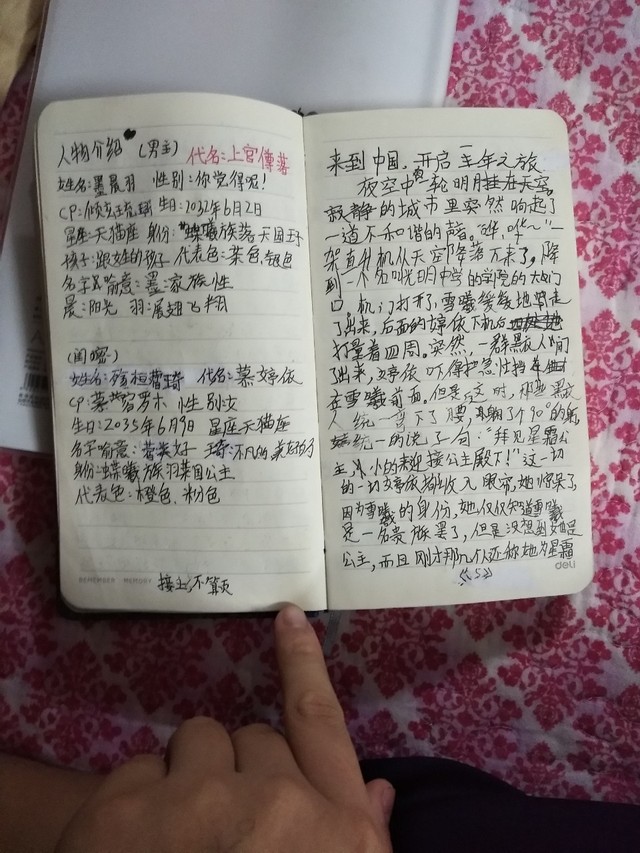 人物介绍（男主）代名:上官傳落
姓名:墨晨羽 性别:你觉得呢!
CP: 生日:2032年6月2日
星座:天猫座 身份:蝶曦族落天国王子
孩子:跟女姓的孩子 代表色:紫色,银色
名字&喻意:墨:家族性
晨:阳光 羽:展翅飞翔
(闺密)
姓名: 代名:慕婷依
CP:慕容罗木 性别女
生日:2035年6月9日 星座天猫座
名字喻意: 美好 不凡的
身份:蝶曦族羽莱国公主
代表色:橙色、粉色
REMEMBER MEMORY 接上,不算页
来到中国,开启三年之旅
夜空中一轮明月挂在天空,
寂静的城市里突然响起了
一道不和谐的声音。“一
架直升机从天空降落下来了,降
到一个名叫光明中学的学院的大门
口,机门打开了,雪曦缓缓地走
了出来,后面的婷依下机后
打量着四周。突然,一群黑衣人们
了出来,婷依吓得护急性挡
在雪曦前面。但是,这时,那些黑衣
人统一弯下了腰,鞠了个90°的躬,
统一的说了一句:“拜见星霜公
主,小的来迎接公主殿下!”这一切
的一切婷依都收入眼帘,她惊呆了,
因为雪曦的身份,她仅仅知道雪曦
是一名贵族罢了,但是没想到她是
公主,而且刚才那几人还称她为星霜
《5》
deli